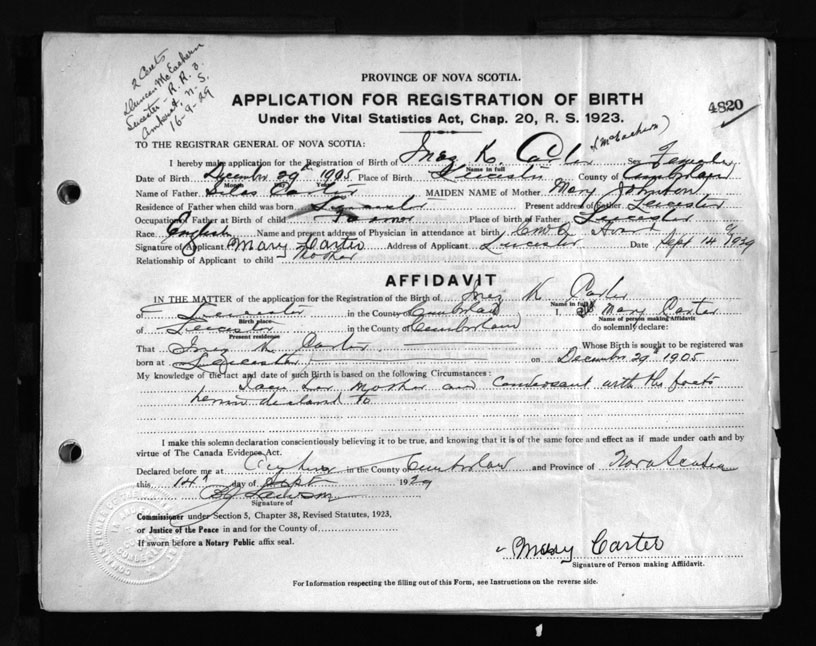 2 Cents
Duncan McEachern
Leicester - R.R. 3.
Amherst, N.S.
16-9-29
PROVINCE OF NOVA SCOTIA.
APPLICATION FOR REGISTRATION OF BIRTH
4820
Under the Vital Statistics Act, Chap. 20, R. S. 1923.
(McEachern)
TO THE REGISTRAR GENERAL OF NOVA SCOTIA:
I hereby make application for the Registration of Birth of Inez K. Carter Sex Female
Name in full
Date of Birth December 29th 1905 Place of Birth Leicester County of Cumberland
Month Year
Name of Father Silas Carter MAIDEN NAME of Mother Mary Johnson
Residence of Father when child was born Leicester Present address of Father Leicester
Occupation of Father at Birth of child Farmer Place of birth of Father Leicester
Race English Name and present address of Physician in attendance at birth
Signature of Applicant Mary Carter Address of Applicant Leicester Date Sept 14th 1929
Relationship of Applicant to child Mother
AFFIDAVIT
IN THE MATTER of the application for the Registration of the Birth of Inez K Carter
Name in full
of Leicester in the County of Cumberland I, Mary Carter
Birth place Name of person making Affidavit
of Leicester in the County of Cumberland do solemnly declare:
Present residence
That Inez K Carter Whose Birth is sought to be registered was
born at Leicester on December 29th 1905
My knowledge of the fact and date of such Birth is based on the following Circumstances:
I am her Mother and conversant with the facts
herein declared to
I make this solemn declaration conscientiously believing it to be true, and knowing that it is of the same force and effect as if made under oath and by
virtue of The Canada Evidence Act.
Declared before me at in the County of Cumberland and Province of Nova Scotia
this 14th day of Sept 1929
Signature of
Commissioner under Section 5, Chapter 38, Revised Statutes, 1923,
or Justice of the Peace in and for the County of
If sworn before a Notary Public affix seal.
Mary Carter
Signature of Person making Affidavit.
For Information respecting the filling out of this Form, see Instructions on the reverse side.